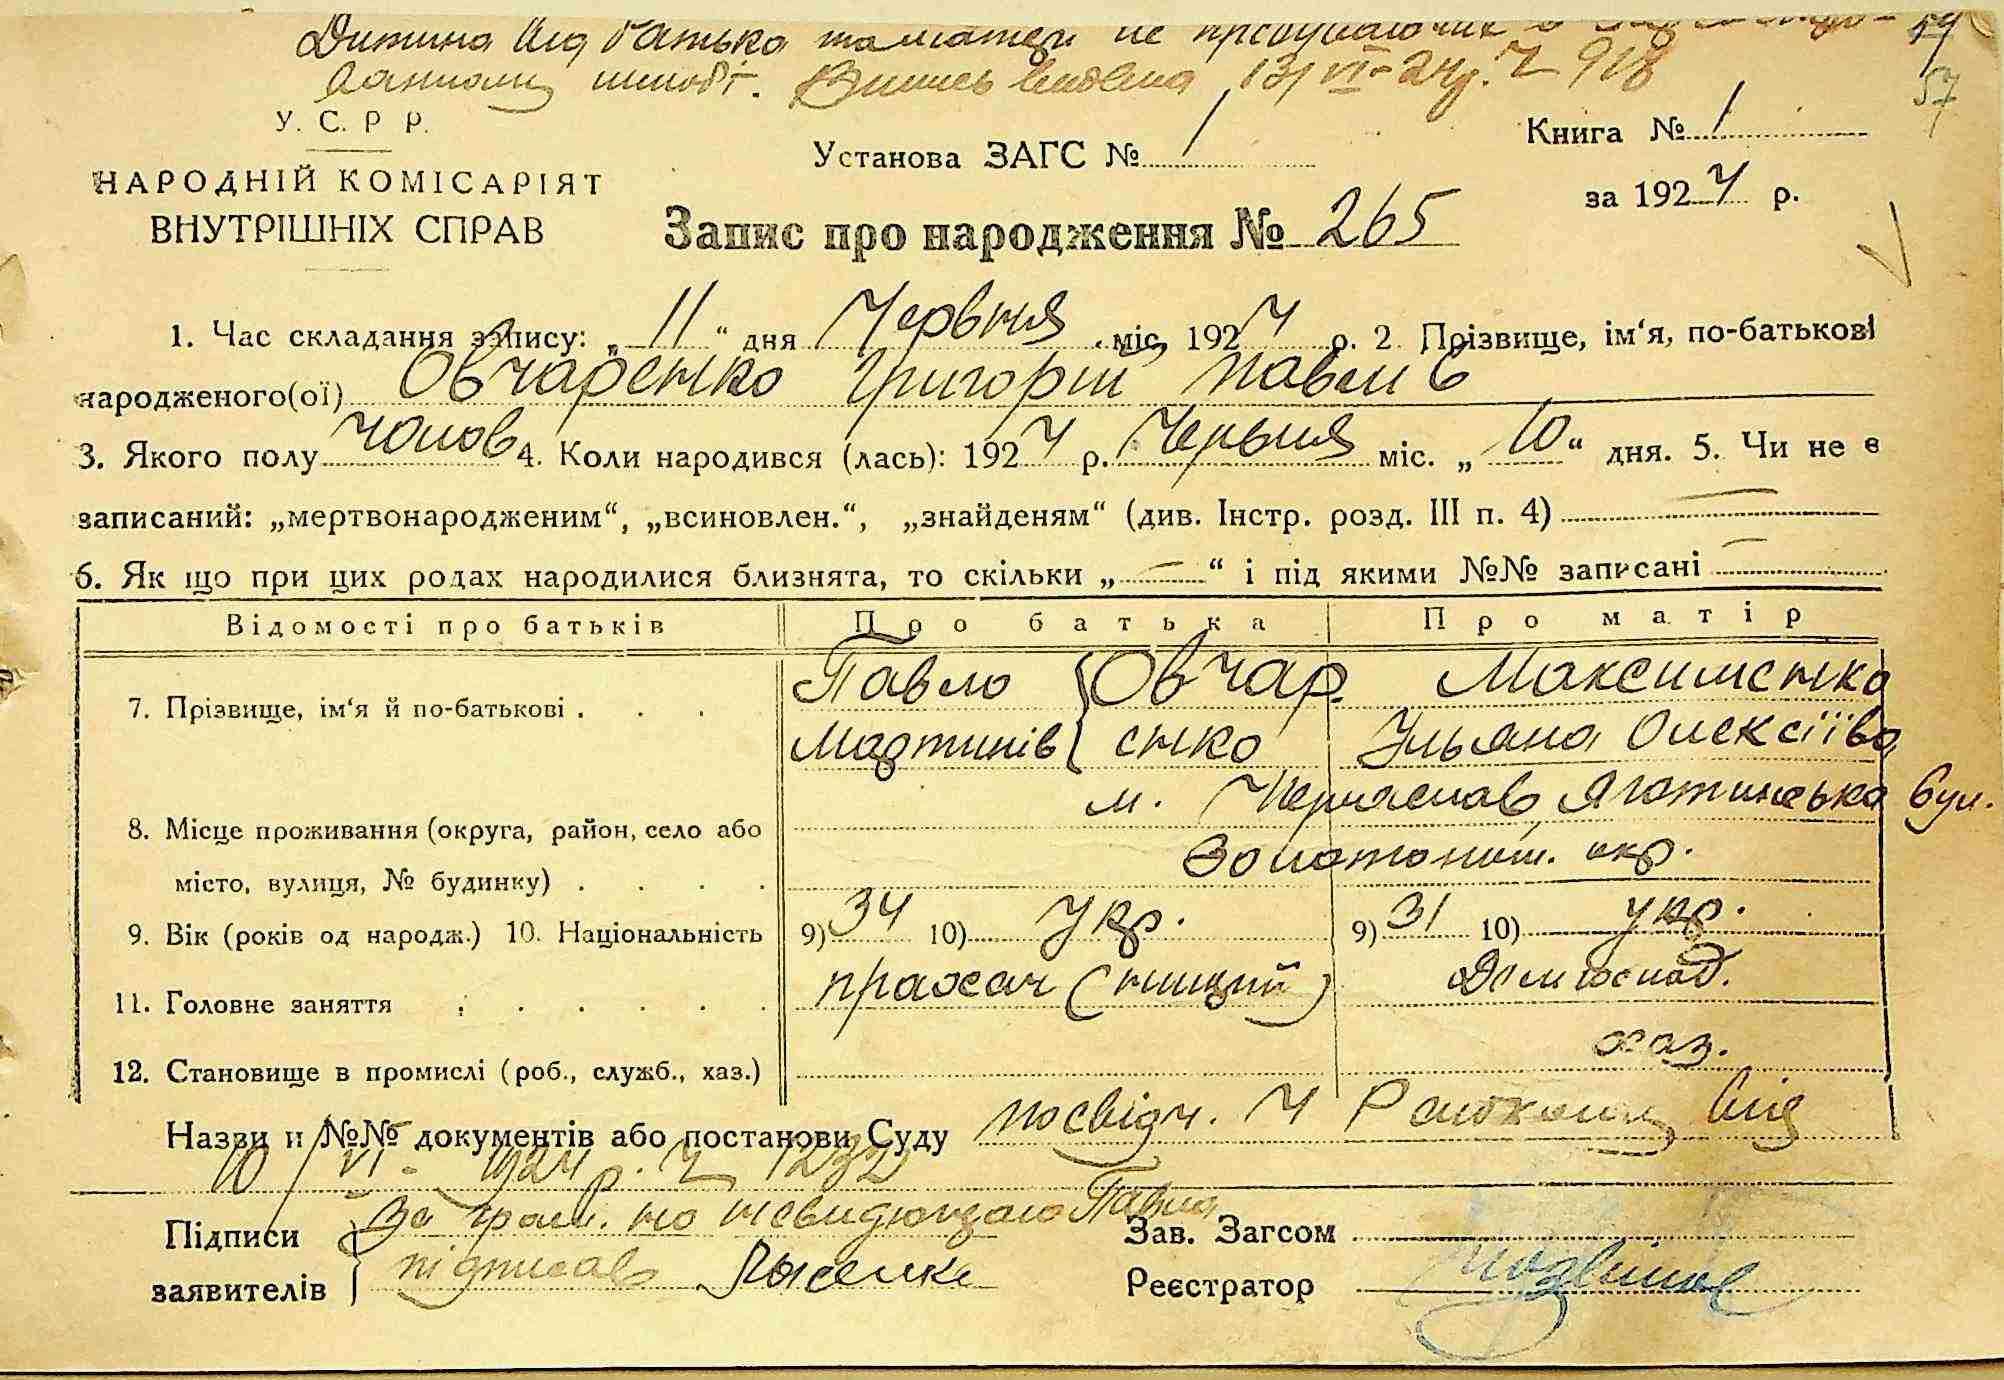 Дитина від батька та матери не пребуваючих в зареєстро-
ванному шлюбі. Випись видана 13/VI-24 р. № 918
54
57
У. С. Р. Р.
Установа ЗАГС № 1
Книга № 1
НАРОДНІЙ КОМІСАРІЯТ
ВНУТРІШНІХ СПРАВ
за 1924 р.
Запис про народження № 265
1. Час складання запису: „11“ дня Червня міс. 1924 р. 2. Прізвище, ім‘я, по-батькові
народженого(ої) Овчаренко Григорій Павлів
3. Якого полу чолов 4. Коли народився (лась): 1924 р. Червня міс. „10“ дня. 5. Чи не є
записаний: „мертвонародженим“, „всиновлен.“, „знайденям“ (див. Інстр. розд. III п. 4) —
6. Як що при цих родах народилися близнята, то скільки „—“ і під якими №№ записані —
Відомості про батьків Про батька Про матір
7. Прізвище, ім‘я й по-батькові . . . Павло { Овчар. Максименко
Мартинів { енко Ульяна Олексіїва
м. Переяслав, Яготинська вул.
8. Місце проживання (округа, район, село або
місто, вулиця, № будинку) . . . . Золотонош. окр.
9. Вік (років од народж.) 10. Національність 9) 34 10) Укр. 9) 31 10) укр.
11. Головне заняття . . . . . . прохач (нищий) Домгоспод.
12. Становище в промислі (роб., служб., хаз.) хаз.
Назви и №№ документів або постанови Суду посвідч. Ч від
10/VI - 1924 р. № 1232
Підписи За грам. но Павла
заявителів підписав Лысенко
Зав. Загсом
Реєстратор